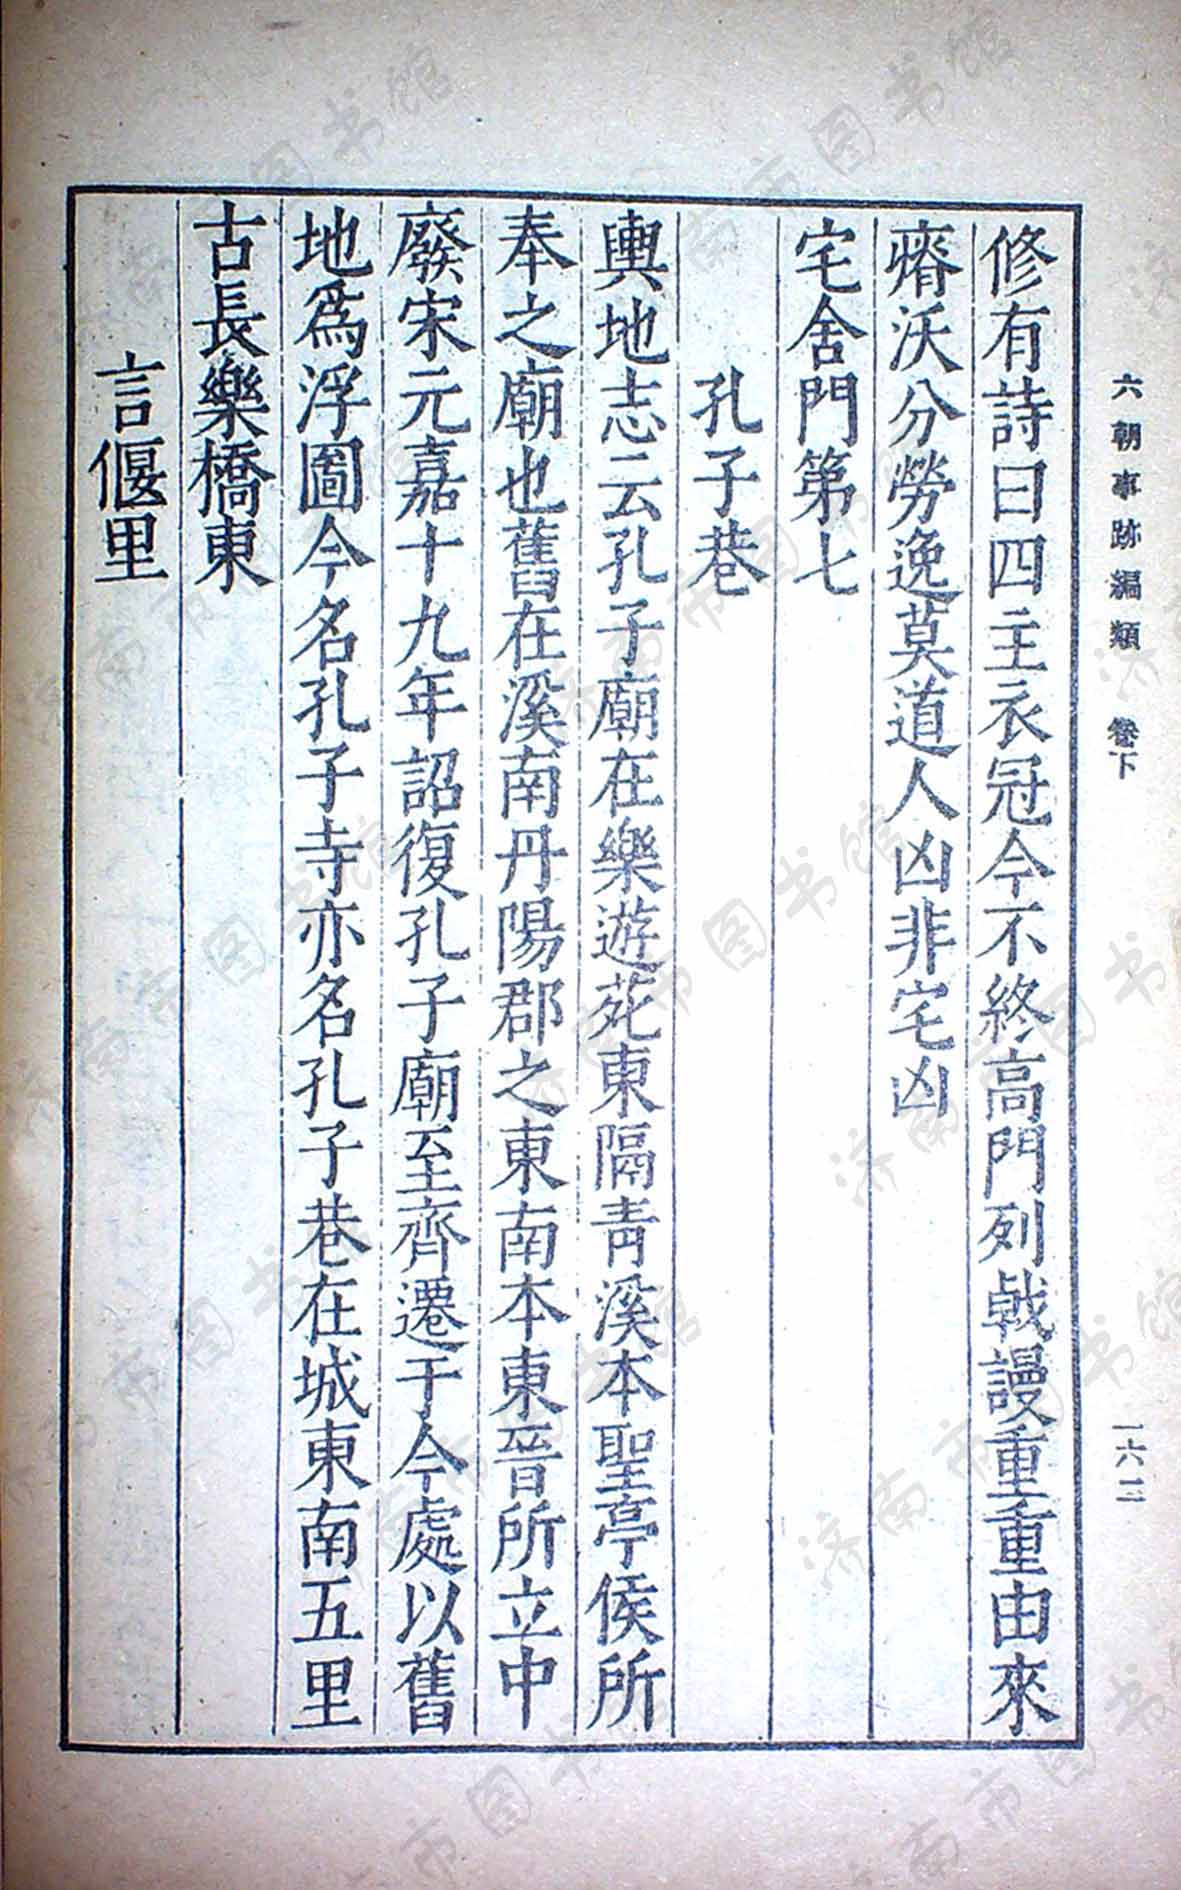 六朝事跡編類 卷下 一六二
修有詩曰四主衣冠今不終高門列戟謾重重由來
瘠沃分勞逸莫道人凶非宅凶
宅舍門第七
孔子巷
輿地志云孔子廟在樂遊苑東隔青溪本聖亭侯所
奉之廟也舊在溪南丹陽郡之東南本東晉所立中
廢宋元嘉十九年詔復孔子廟至齊遷于今處以舊
地爲浮圖今名孔子寺亦名孔子巷在城東南五里
古長樂橋東
言偃里
济南市图书馆